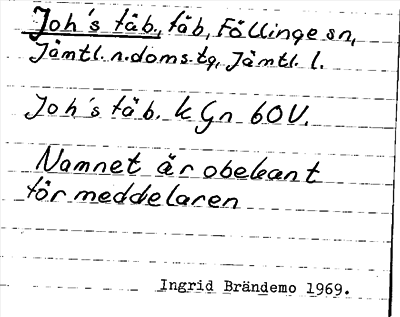 Joh's fäb, fäb, Föllinge sn,
Jämtl. n. doms. tg, Jämtl. l.
Joh's fäb. k Gn 60V.
Namnet är obekant
för meddelaren
Ingrid Brändemo 1969.